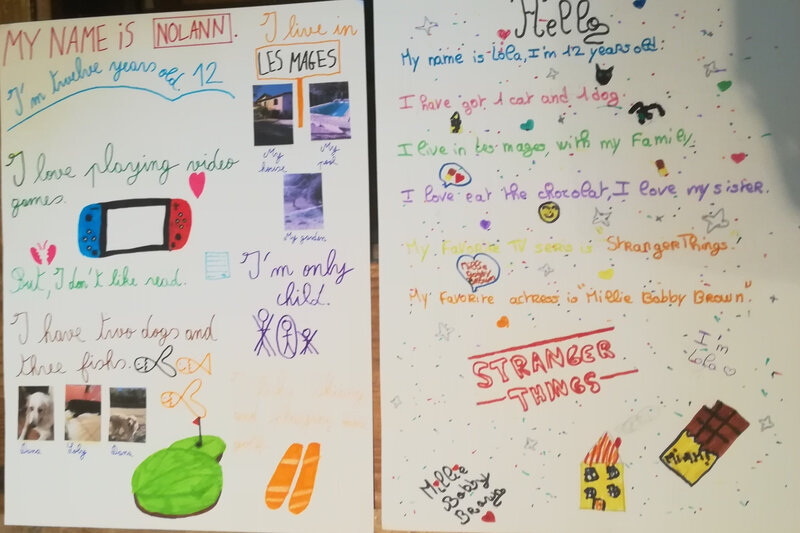 MY NAME iS NOLANN.
I'm twelve years old. 12
I love playing video
games.
But, I don't like read.
I have two dogs and
three fishs.
Dana
Loly
Dana
I live in
LES MAGES
My
house
My
pool
My garden
I'm only
child.
Hello
My name is Lola, I'm 12 years old.
I have got 1 cat and 1 dog.
I live in Les mages, with my Family.
I love eat the chocolat, I love my sister.
My Favorite TV series is "Stranger Things".
Millie
Bobby
Brown
My Favorite actress is "Millie Bobby Brown".
STRANGER
THINGS
I'm
Lola
Miam!
Millie
Bobby
Brown